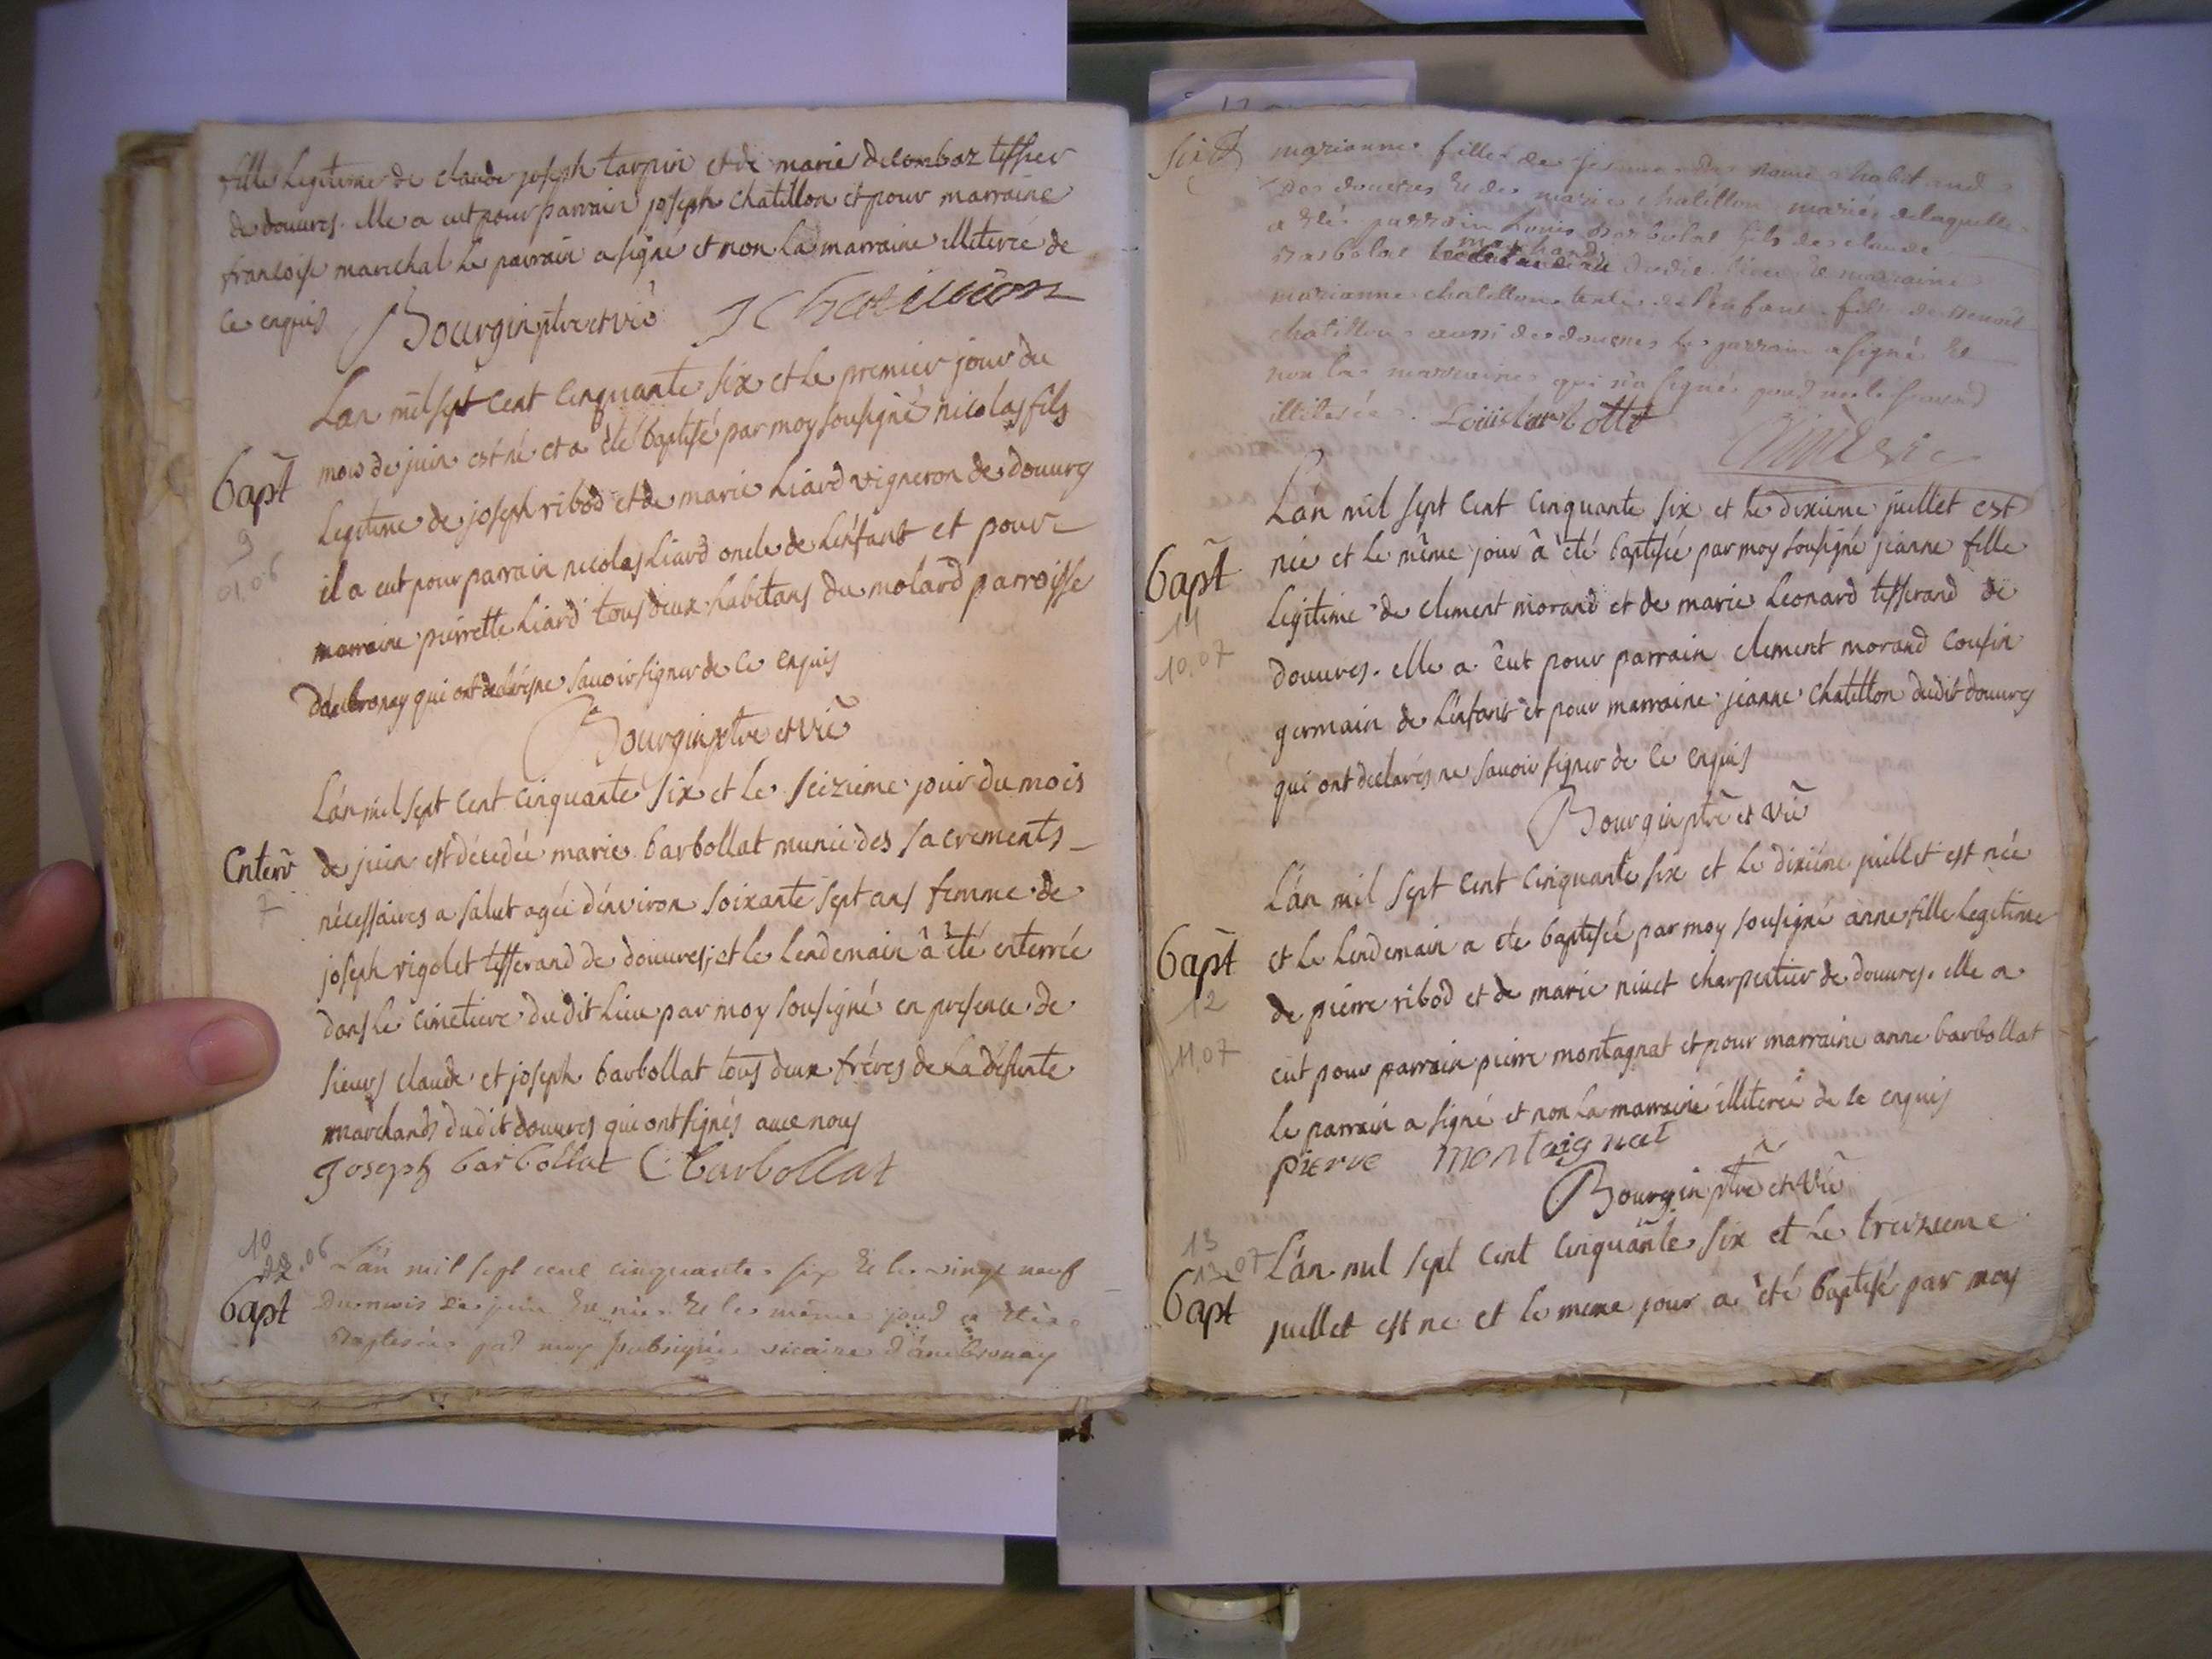 fille legitime de claude joseph tarpin et de marie decombaz tessier
de douvres. elle a eut pour parrain joseph chatillon et pour marraine
francoise marechal le parrain a signé et non la marraine illiterée de
ce enquis Bourgin ptre et vic J Chatillion
Lan mil sept cent cinquante six et le premier jour du
Bapt mois de juin est né et a été baptisé par moy sousigné nicolas fils
9 legitime de joseph ribod et de marie liard vigneron de douvres
01.06 il a eut pour parrain nicolas liard oncle de l'enfant et pour
marraine pierrette liard tous deux habitans du molard parroisse
dambronay qui ont declarés ne savoir signer de ce enquis
Bourgin ptre et vic
L'an mil sept cent cinquante six et le seizieme jour du mois
Enterr de juin est décedée marie barbollat munie des sacrements
7 nécessaires a salut agée d'environ soixante sept ans femme de
joseph rigolet tisserand de douvres, et le lendemain a été enterrée
dans le cimetiere dudit lieu par moy sousigné en presence de
sieurs claude et joseph barbollat tous deux fréres de la defunte
marchands dudit douvres qui ont signés avec nous
Joseph barbollat C barbollat
10
.06 L'an mil sept cent cinquante six et le vingt neuf
Bapt du mois de juin est née et le meme jour a étée
Baptisée par moy subsigné vicaire d'ambronay
marianne fille de habitand
des douvres et de marie chatillon mariés delaquelle
a été parrain Louis Barbolat fils de claude
Barbolat marchand dudit lieu et marraine
marianne chatillon tante de l'enfant fille de Benoit
chatillon aussi de douvres le parrain a signé et
non la marraine qui n'a signé pour ne le savoir
illiterée. Louis barbollat
L'an mil sept cent cinquante six et le dixieme juillet est
Bapt née et le même jour â été baptisée par moy sousigné jeanne fille
11 legitime de clement morand et de marie leonard tisserand de
10.07 douvres. elle a eut pour parrain clement morand cousin
germain de l'enfant et pour marraine jeanne chatillon dudit douvres
qui ont declarés ne savoir signer de ce enquis
Bourgin ptre et vic
L'an mil sept cent cinquante six et le dixiéme juillet est née
Bapt et le lendemain a été baptisée par moy sousigné anne fille legitime
12 de pierre ribod et de marie niuet charpentier de douvres. elle a
11.07 eut pour parrain pierre montagnat et pour marraine anne barbollat
le parrain a signé et non la marraine illiterée de ce enquis
pierre montaignat
Bourgin ptre et vic
13
13.07 L'an mil sept cent cinquante six et le treizieme
Bapt juillet est né et le meme jour a été baptisé par moy